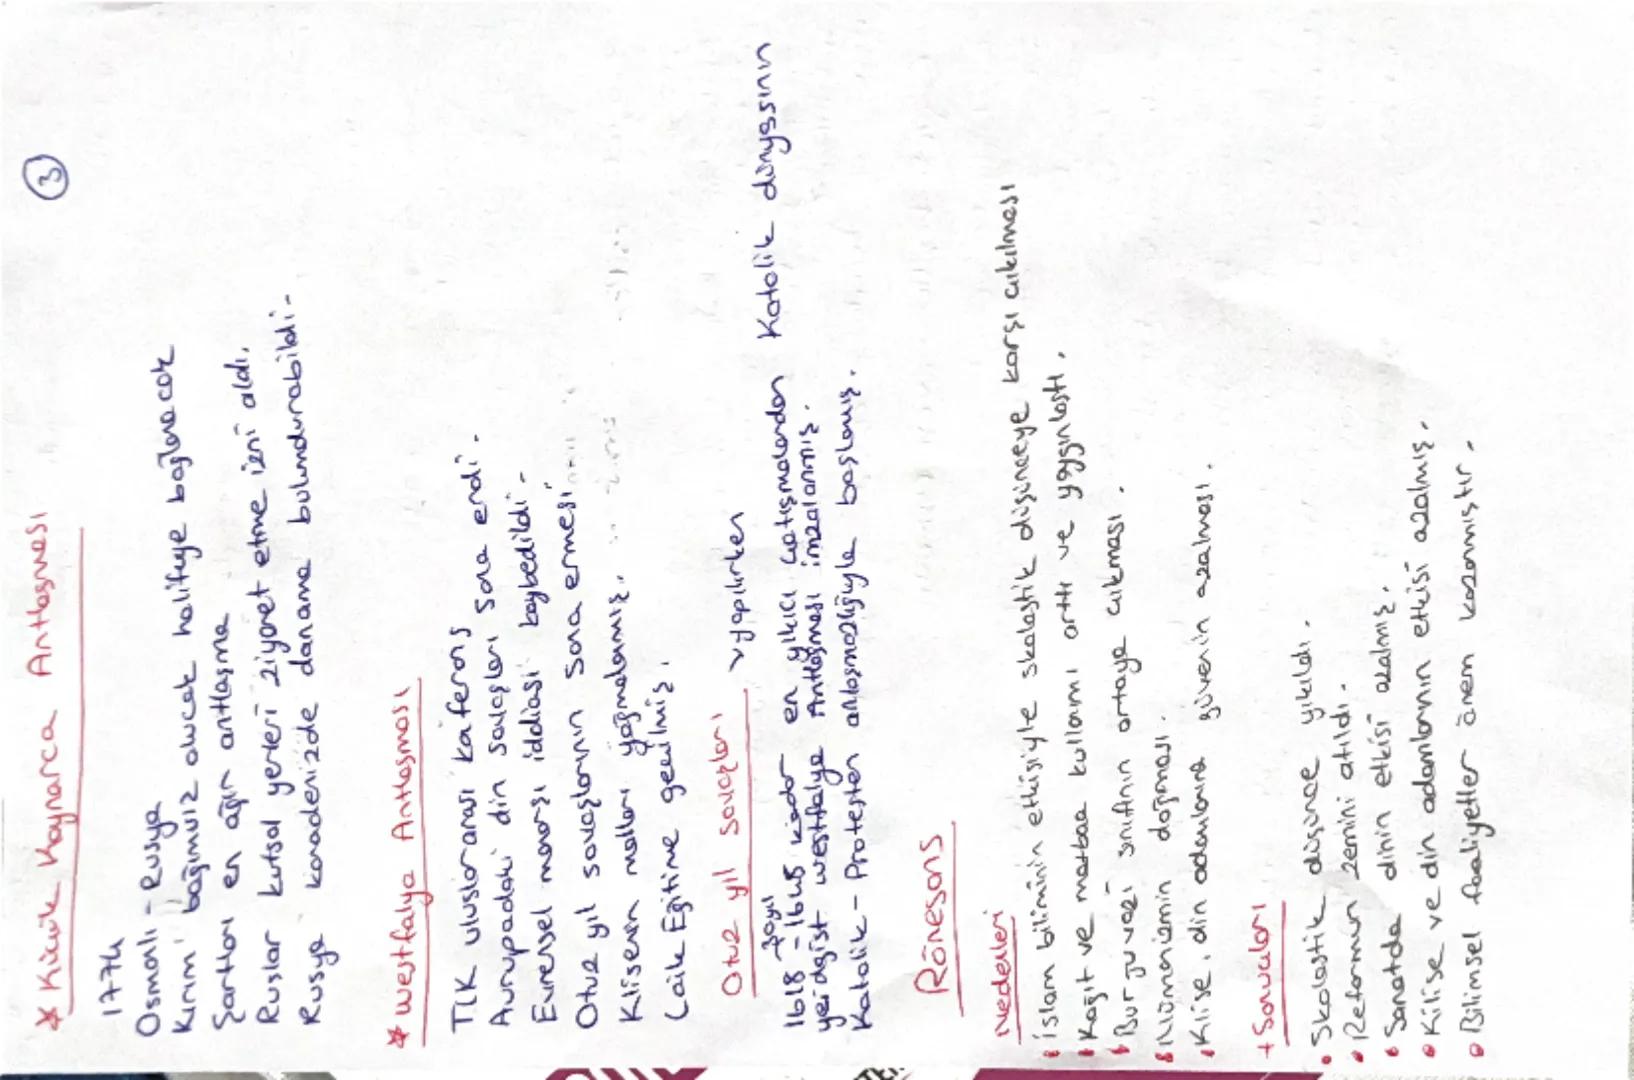 3
* Küçük Kaynarca Antlaşması
1774
Osmanlı - Rusya
Kırım bağımsız olucak halifeye bağlanacak
Şartları en ağır antlaşma
Ruslar kutsal yerleri ziyaret etme izni aldı.
Rusya karadenizde donanma bulundurabildi.
* Westfalya Antlaşması
İLK uluslararası kaferans
Avrupadaki din savaşları sona erdi.
Evrensel monarşi iddiası kaybedildi.
Otuz yıl savaşlarının sona ermesi
Klisenin malları yağmalanmış.
Laik Eğitime geçilmiş.
Otuz yıl savaşları yapılırken
1618 - 1648 kadar en yıkıcı çatışmalardan Katolik dünyasının
Westfalya Antlaşması imzalanmış.
Katolik - Protestan anlaşmazlığıyla başlamış.
Rönesans
Nedenleri
• İslam biliminin etkisiyle skolastik düşünceye karşı çıkılması
• Kağıt ve matbaa kullanımı arttı ve yaygınlaştı.
• Burjuvazi sınıfının ortaya çıkması.
• Hümanizmin doğması.
• Klise, din adamlarına güvenin azalması.
+ Sonuçları
• Skolastik düşünce yıkıldı.
• Reformun zemini atıldı.
• Sanatda dinin etkisi azalmış.
• Kilise ve din adamlarının etkisi azalmış.
• Bilimsel faaliyetler önem kazanmıştır.